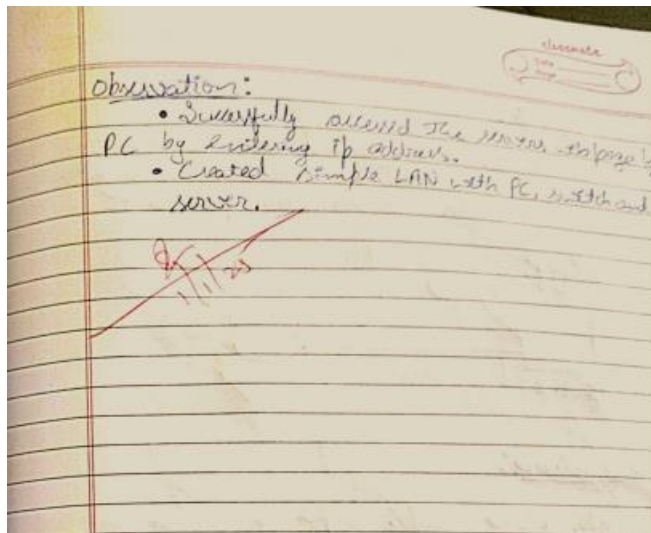 classmate
Date
Page
Observation:
• Successfully accessed the servers webpage
PC by Entering ip address.
• Created simple LAN with PC, switch and
server.
1/1/25